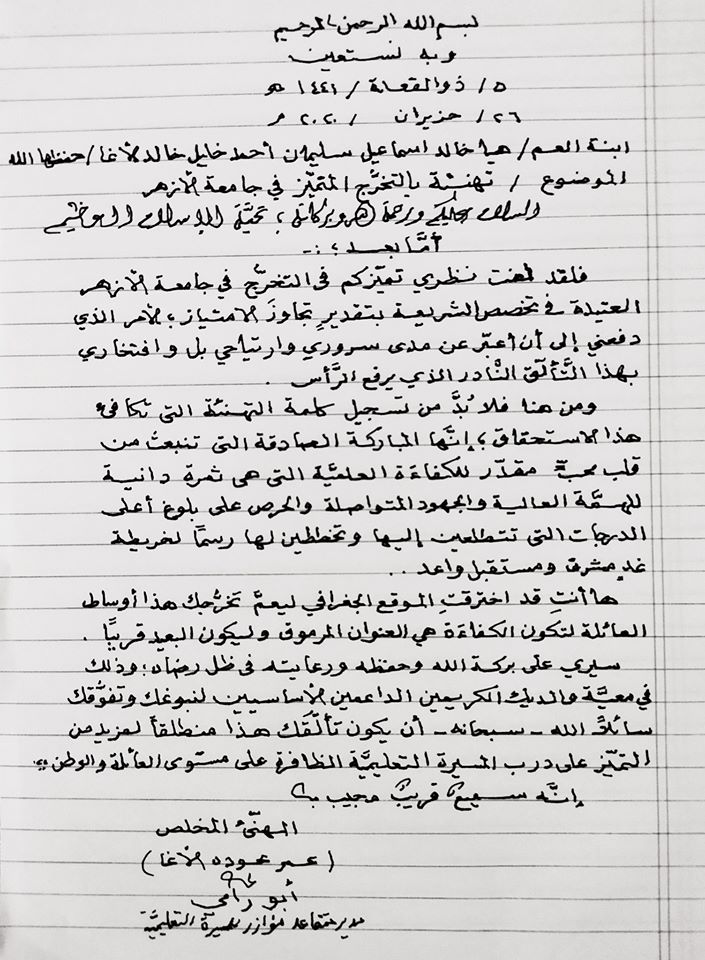 بسم الله الرحمن الرحيم
و به نستعين
٥ / ذو القعدة / ١٤٤١ هـ
٢٦ / حزيران / ٢٠٢٠ م
ابنة العم / هيا خالد اسماعيل سليمان أحمد خليل خالد الأغا / حفظها الله
الموضوع / تهنئة بالتخرّج المتميّز في جامعة الأزهر
السلام عليكم ورحمة الله وبركاته ؛ تحيّة الإسلام العظيم
أمّا بعد ؛ :-
فلقد لفت نظري تميّزكم في التخرّج في جامعة الأزهر
العتيدة في تخصص الشريعة بتقديرٍ تجاوزَ الامتياز ؛ الأمر الذي
دفعني إلى أن أعبّر عن مدى سروري وارتياحي بل و افتخاري
بهذا التَّألّق النّادر الذي يرفع الرَّأس .
ومن هنا فلا بُدَّ من تسجيل كلمة التهنئة التي تكافئ
هذا الاستحقاق ؛ إنَّها المباركة الصادقة التي تنبعث من
قلب محبٍّ مقدّر للكفاءة العلميَّة التي هي ثمرة دانية
للهمَّة العالية والجهود المتواصلة والحرص على بلوغ أعلى
الدرجات التي تتطلعين إليها وتخططين لها رسمًا لخريطة
غدٍ مشرق ومستقبل واعد . .
ها أنتِ قد اخترقتِ الموقع الجغرافي ليعمَّ تخرُّجك هذا أوساط
العائلة لتكون الكفاءة هي العنوان المرموق وليكون البعيد قريبًا .
سيري على بركة الله وحفظه ورعايته في ظل رضاه ؛ وذلك
في معيَّة والديك الكريمين الداعمين الأساسيين لنبوغك وتفوُّقك
سائلاً الله - سبحانه - أن يكون تألّقك هذا منطلقاً لمزيد من
التميّز على درب المسيرة التعليميَّة الظافرة على مستوى العائلة والوطن
إنَّه سميعٌ قريبٌ مجيب
المهنّئ المخلص
( عمر عوده الأغا )
أبو رامي
مدير متقاعد مؤازر للمسيرة التعليميَّة